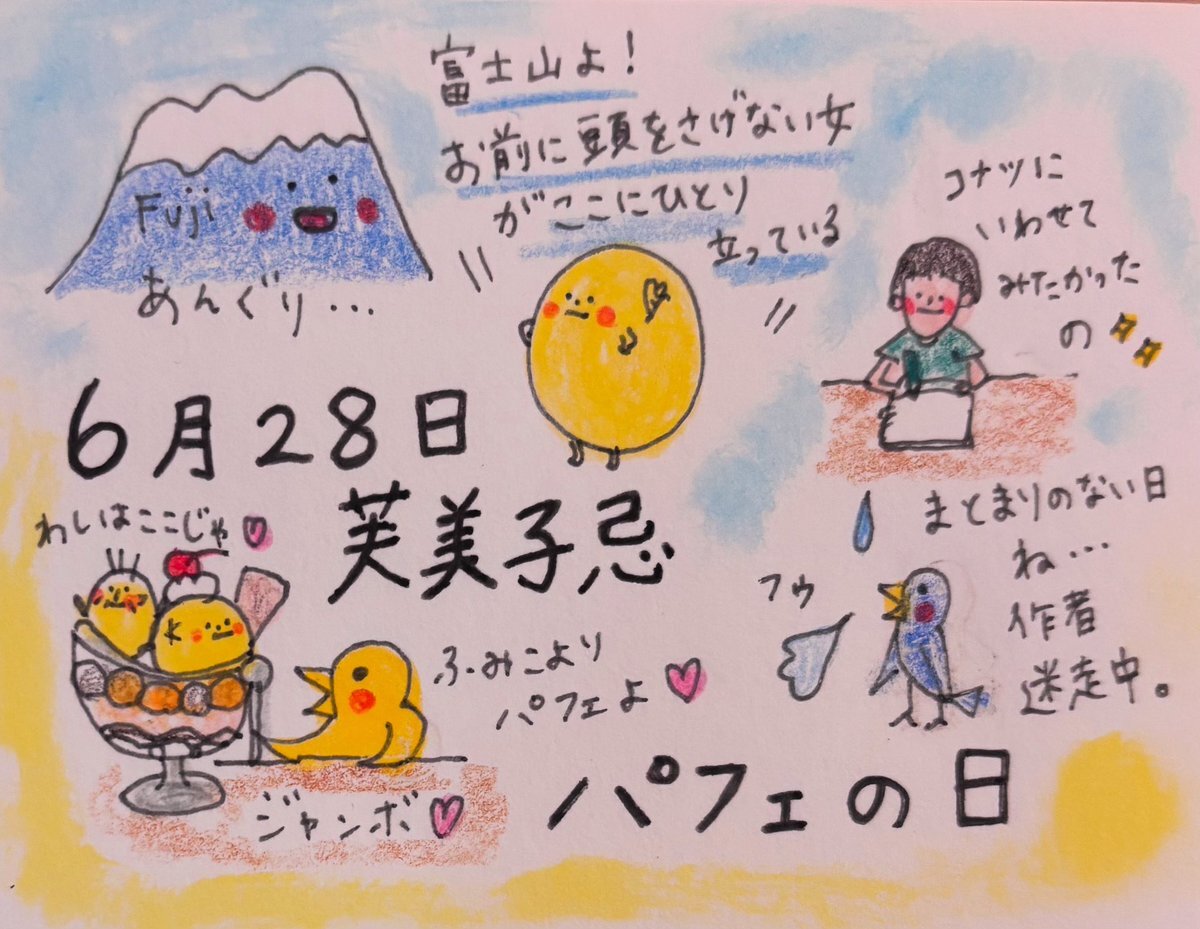 富士山よ！
お前に頭をさげない女
がここにひとり
立っている
Fuji
あんぐり…
コナツに
いわせて
みたかった
の
6月28日
芙美子忌
わしはここじゃ
ふみこより
パフェよ
ジャンボ
フゥ
まとまりのない日
ね…
作者
迷走中。
パフェの日